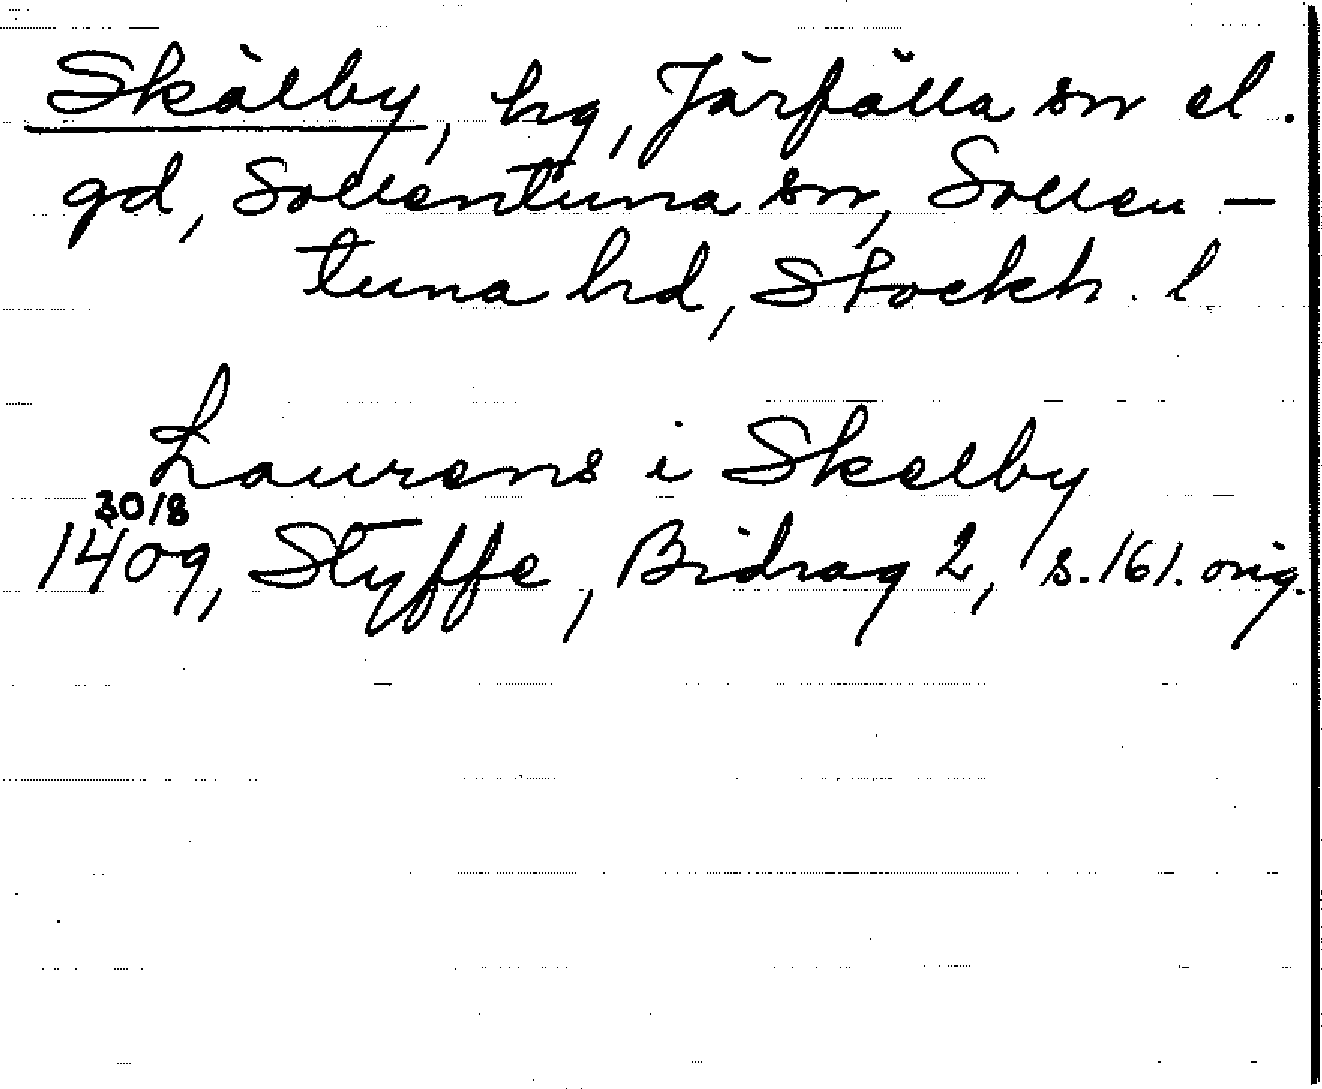 Skälby, hg, Järfälla sn el.
gd, Sollentuna sn, Sollen-
tuna hd, Stockh. l
Laurens i Skelby
30/8
1409, Styffe, Bidrag 2, s. 161. orig.